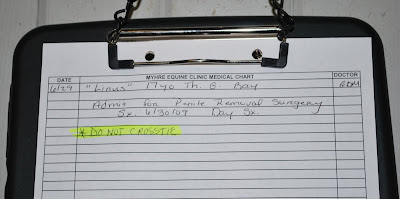 MYHRE EQUINE CLINIC MEDICAL CHART
DATE DOCTOR
6/29 "Linus" 17yo Th. G. Bay
Admit for Penile Removal Surgery
Sx. 6/30/09 Day Sx.
* DO NOT CROSSTIE